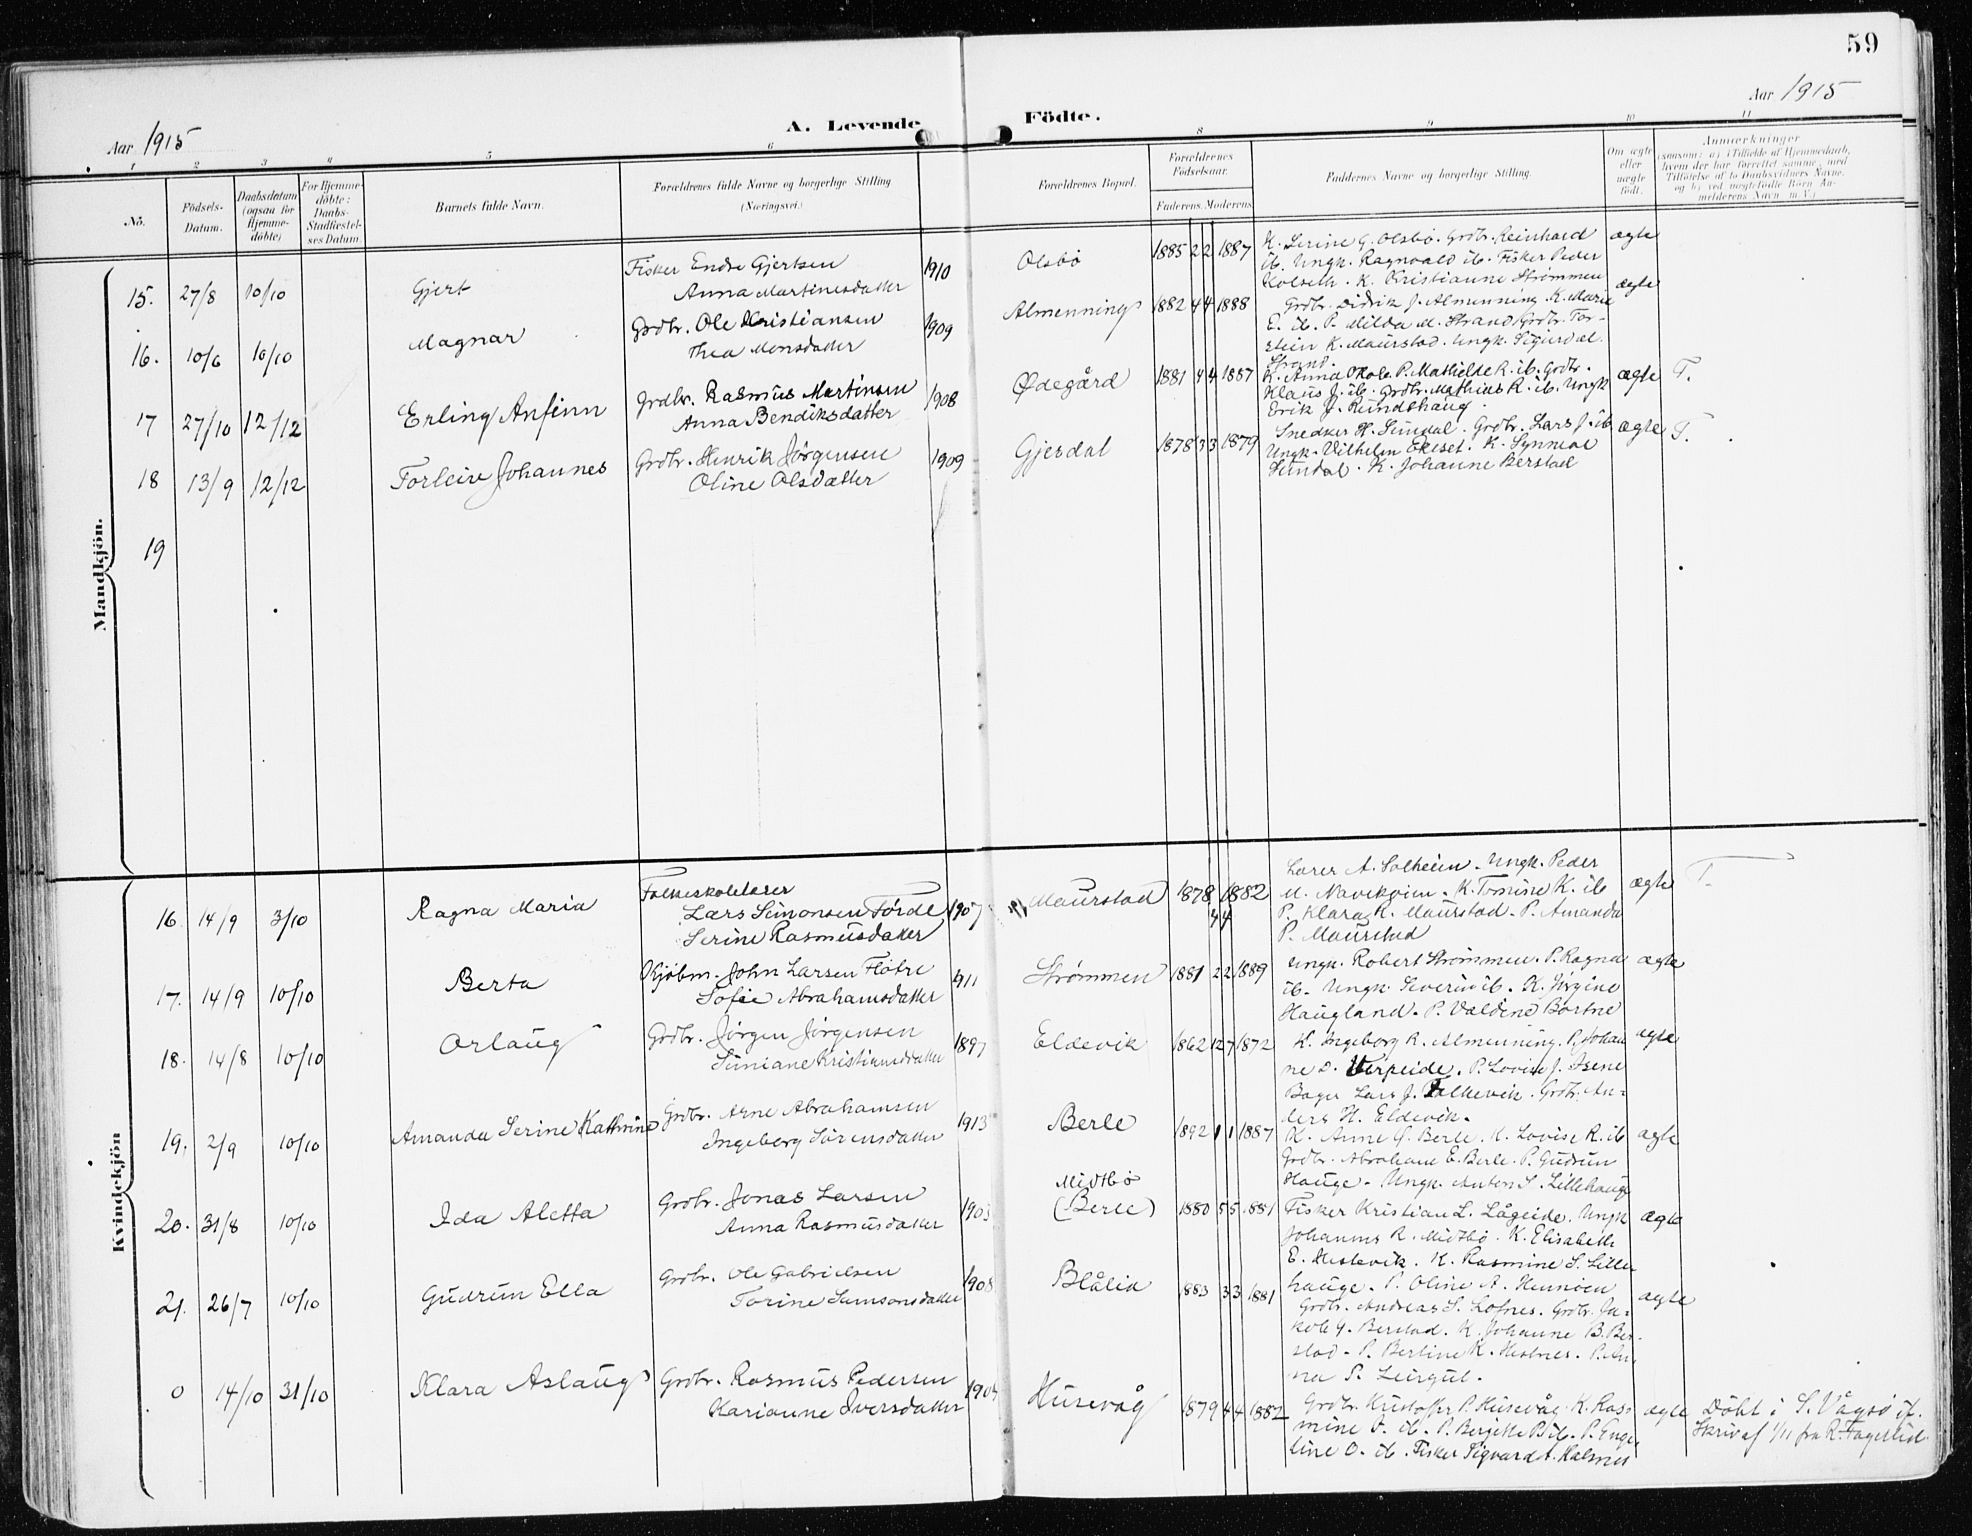 59
Aar 1915
Aar 1915
A. Levende Födte.
1 2 3 4 5 6 8 9 10 11
No.
Födsels-
Datum.
Daabsdatum
(ogsaa for
Hjemme-
döbte)
For Hjemme-
döbte:
Daabs-
Stadfæstel-
ses Datum.
Barnets fulde Navn.
Forældrenes fulde Navne og borgerlige Stilling
(Næringsvei.)
Forældrenes Bopæl.
Forældrenes
Födselsaar.
Faderens. Moderens
Faddernes Navne og borgerlige Stilling.
Om ægte
eller
uægte
födt.
Anmærkninger
(saasom: a) i Tilfælde af Hjemmedaab,
hvem der har forrettet samme, med
Tilföielse af to Daabsvidners Navne,
og b) ved uægtefödte Börn An-
melderens Navn m. V.)
Mandkjön.
15. 27/8 10/10 Gjert
Fisker Endre Gjertsen
Anna Martinusdatter
1910 Olsbö 1885 2 2 1887
K. Serine G. Olsbö. Grdbr. Reinhard
ib. Ungk. Ragnvald ib. Fisker Peder
Kolseth. K. Kristianne Strömmen
ægte
16. 10/6 10/10 Magnar
Grdbr. Ole Kristiansen
Thea Monsdatter
1909 Almenning 1882 4 4 1888
Grdbr. Didrik J. Almenning. K. Marie
E. ib. P. Milda M. Strand. Grdbr. Tor-
stein K. Maurstad. Ungk. Sigurd al.
Strand.
ægte
17 27/10 12/12 Erling Anfinn
Grdbr. Rasmus Martinsen
Anna Bendiksdatter
1908 Ødegård 1881 4 4 1887
K. Anna Okole. P. Mathilde R. ib. Grdbr.
Klaus J. ib. Grdbr. Mathias R. ib. Ungk
Erik J. Rundehaug.
ægte T.
18 13/9 12/12 Torleiv Johannes
Grdbr. Henrik Jörgensen
Oline Olsdatter
1909 Gjerdal 1878 3 3 1879
Snedker H. Sindal. Grdbr. Lars J. ib
Ungk. Vilhelm Ekeset. K. Synneve
Hundal. K. Johanne Berstad
ægte T.
19
Kvindekjön
16. 14/9 3/10 Ragna Maria
Folkeskolelærer
Lars Simonsen Förde
Serine Rasmusdatter
1907 Maurstad 1878 4 4 1882
Lærer A. Solheim. Ungk. Peder
M. Navekvien. K. Tomine K. ib
P. Klara R. Maurstad. P. Amanda
P. Maurstad
ægte T.
17. 14/9 10/10 Berta
Kjöbm. John Larsen Flötre
Sofie Abrahamsdatter
1911 Strömmen 1881 2 2 1889
Ungk. Robert Strömmen. P. Ragna
ib. Ungk. Severin ib. K. Jörgine
Haugland. P. Valdine Bortne
ægte
18. 14/8 10/10 Orlaug
Grdbr. Jörgen Jörgensen
Simiane Kristiansdatter
1897 Eldevik 1862 12 7 1872
K. Ingeborg R. Almenning. P. Johan
ne D. Verpeide. P. Lovise J. Isene
Bager Lars J. Folkevik. Grdbr. An-
ders H. Eldevik.
ægte
19. 2/9 10/10 Amanda Serine Kathrine
Grdbr. Arne Abrahamsen
Ingeborg Sörensdatter
1913 Berle 1892 1 1 1887
K. Anne O. Berle. K. Lovise R. ib
Grdbr. Abraham E. Berle. P. Gudrun
Hauge. Ungk. Anton S. Lillehauge
ægte
20. 31/8 10/10 Ida Aletta
Grdbr. Jonas Larsen
Anna Rasmusdatter
1903 Midtbö
(Berle) 1880 5 5 1881
Fisker Kristian L. Lågeide. Ungk
Johannes R. Midtbö. K. Elisabeth
E. Hestevik. K. Rasmine S. Lille
hauge. P. Oline A. Hennöen
ægte
21. 26/7 10/10 Gudrun Ella
Grdbr. Ole Gabrielsen
Torine Samsonsdatter
1908 Blålid 1883 3 3 1881
Grdbr. Andreas S. Lofnes. Grdbr. Ja-
kob G. Berstad. K. Johanne B. Ber-
stad. P. Berline K. Hestnes. P. An-
na P. Zurgul.
ægte
0 14/10 31/10 Klara Aslaug
Grdbr. Rasmus Pedersen
Karianne Iversdatter
1904 Husevåg 1879 4 4 1882
Grdbr. Kristoffer P. Husevåg. K. Ras-
mine F. ib. P. Bergitte P. ib. P. Enge-
line O. ib. Fisker Sigvard A. Halsnes
ægte Döbt i S. Vågsö if.
Skriv af 1/11 fra R. Fagerlid.